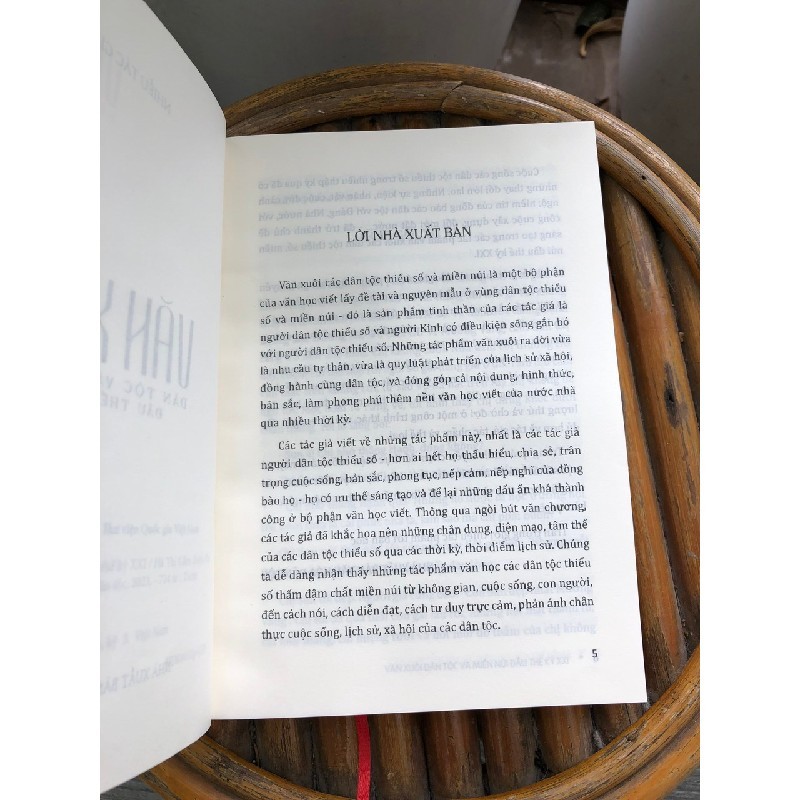 LỜI NHÀ XUẤT BẢN
Văn xuôi các dân tộc thiểu số và miền núi là một bộ phận
của văn học viết lấy đề tài và nguyên mẫu ở vùng dân tộc thiểu
số và miền núi - đó là sản phẩm tinh thần của các tác giả là
người dân tộc thiểu số và người Kinh có điều kiện sống gắn bó
với người dân tộc thiểu số. Những tác phẩm văn xuôi ra đời vừa
là nhu cầu tự thân, vừa là quy luật phát triển của lịch sử xã hội,
đồng hành cùng dân tộc, và đóng góp cả nội dung, hình thức,
bản sắc, làm phong phú thêm nền văn học viết của nước nhà
qua nhiều thời kỳ.
Các tác giả viết về những tác phẩm này, nhất là các tác giả
người dân tộc thiểu số - hơn ai hết họ thấu hiểu, chia sẻ, trân
trọng cuộc sống, bản sắc, phong tục, nếp cảm, nếp nghĩ của đồng
bào họ - họ có ưu thế sáng tạo và để lại những dấu ấn khá thành
công ở bộ phận văn học viết. Thông qua ngòi bút văn chương,
các tác giả đã khắc họa nên những chân dung, diện mạo, tâm thế
của các dân tộc thiểu số qua các thời kỳ, thời điểm lịch sử. Chúng
ta dễ dàng nhận thấy những tác phẩm văn học các dân tộc thiểu
số thấm đậm chất miền núi từ không gian, cuộc sống, con người,
đến cách nói, cách diễn đạt, cách tư duy trực cảm, phản ánh chân
thực cuộc sống, lịch sử, xã hội của các dân tộc.
5